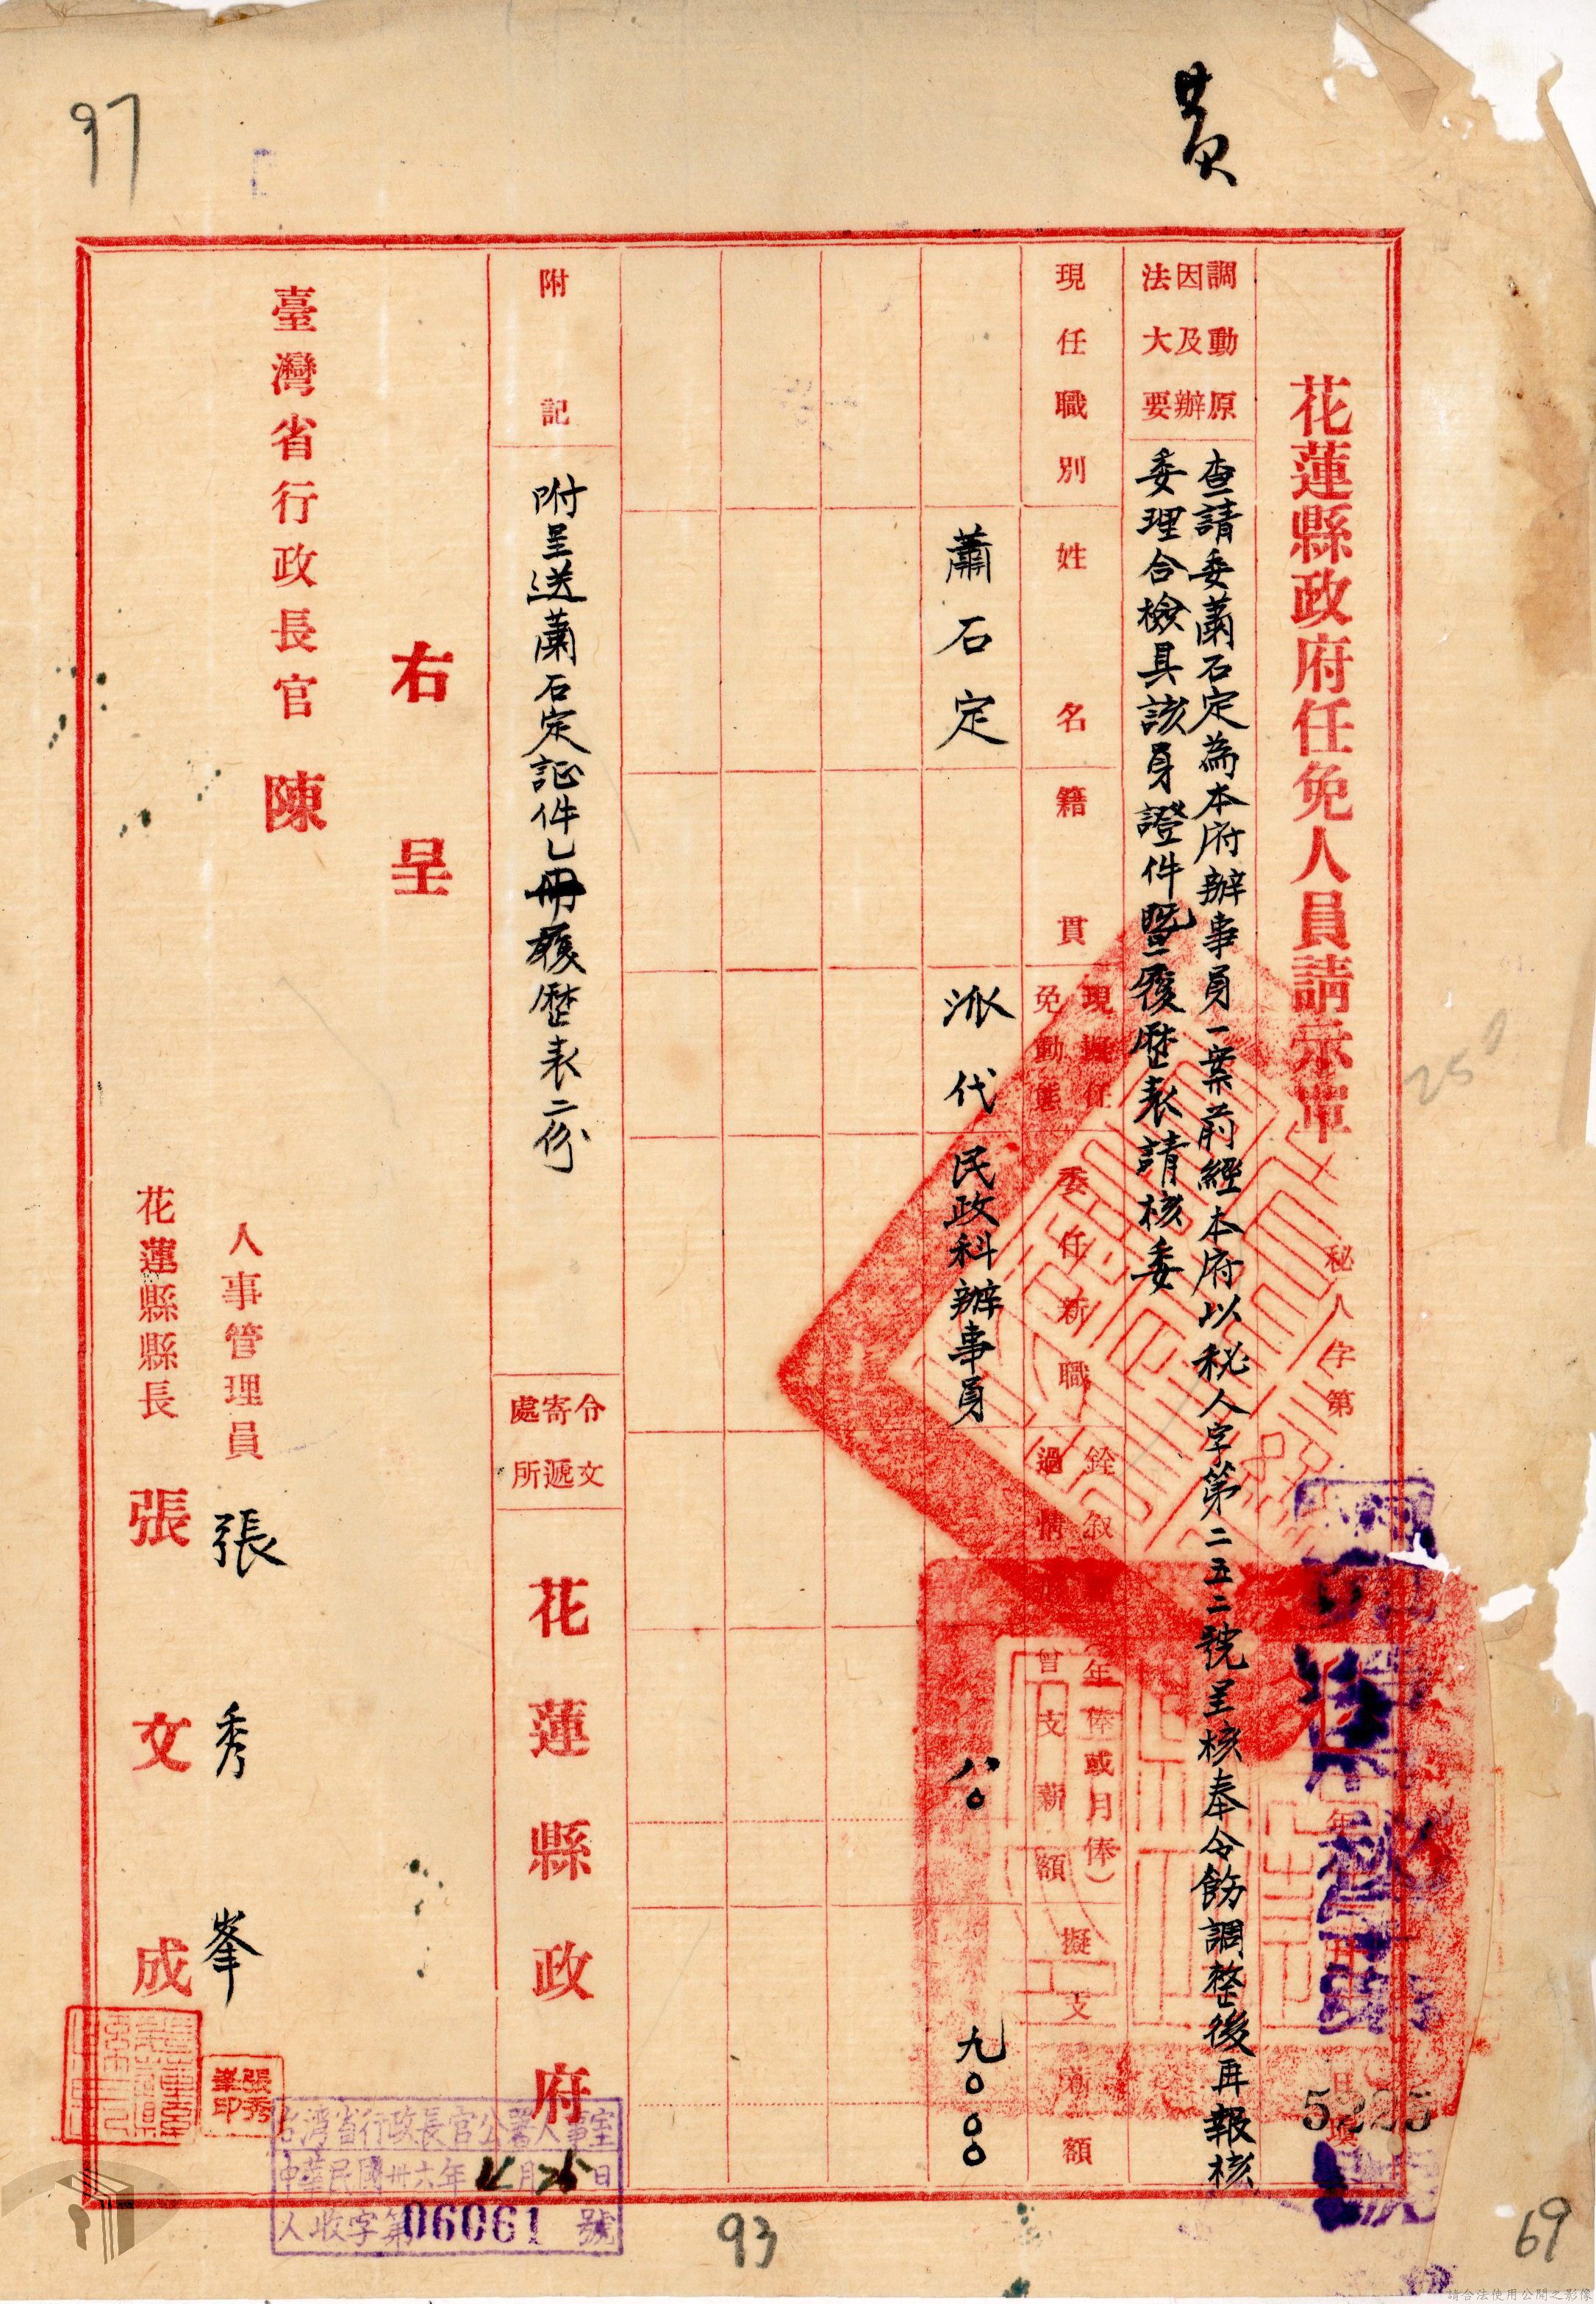 黃
97
花蓮縣政府任免人員請示單
秘人字第
年
5225
調動原
因及辦
法大要
查請委蕭石定為本府辦事員一案前經本府以秘人字第二五二號呈核奉令飭調整後再報核
委理合檢具該員證件暨履歷表請核委
現任職別
姓名
籍貫
現擬任
免動態
委任新職
銓叙
過情
(年俸或月俸)
曾支薪額
擬支薪額
蕭石定
派代
民政科辦事員
八〇
九〇〇〇
附記
附呈送蕭石定証件乚冊履歷表二份
令文
寄遞
處所
花蓮縣政府
右呈
臺灣省行政長官陳
人事管理員 張秀峯
花蓮縣縣長 張文成
張秀
峯印
台湾省行政長官公署人事室
中華民國卅六年 月 日
人收字第06061號
250
93
69
請合法使用公開之影像